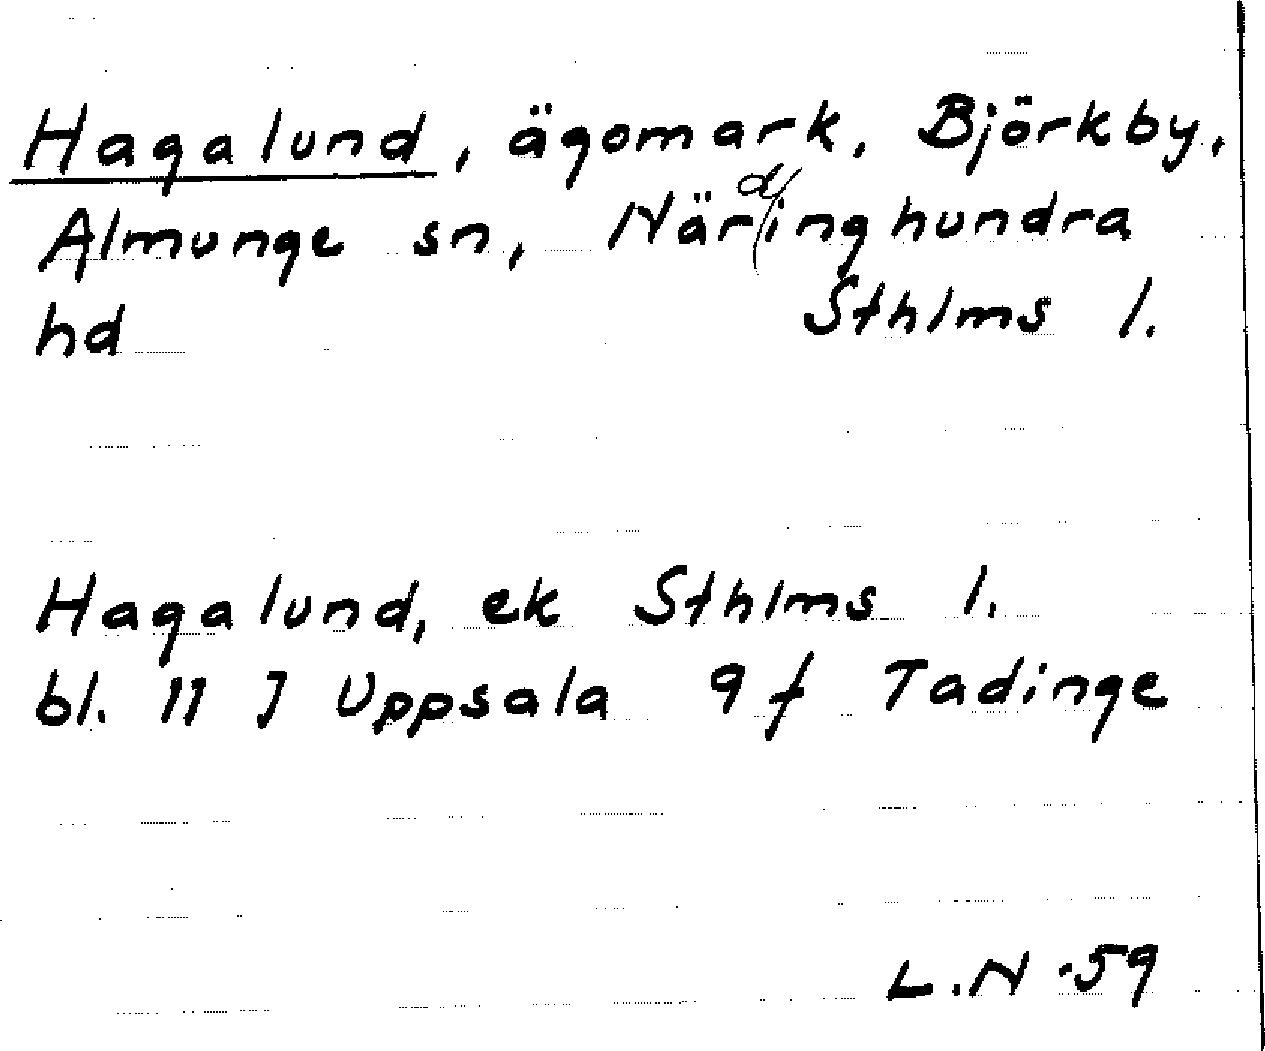 Hagalund, ägomark, Björkby,
Almunge sn, Närdinghundra
hd Sthlms l.
Hagalund, ek Sthlms l.
bl. 11 J Uppsala 9 f Tadinge
L.N -59